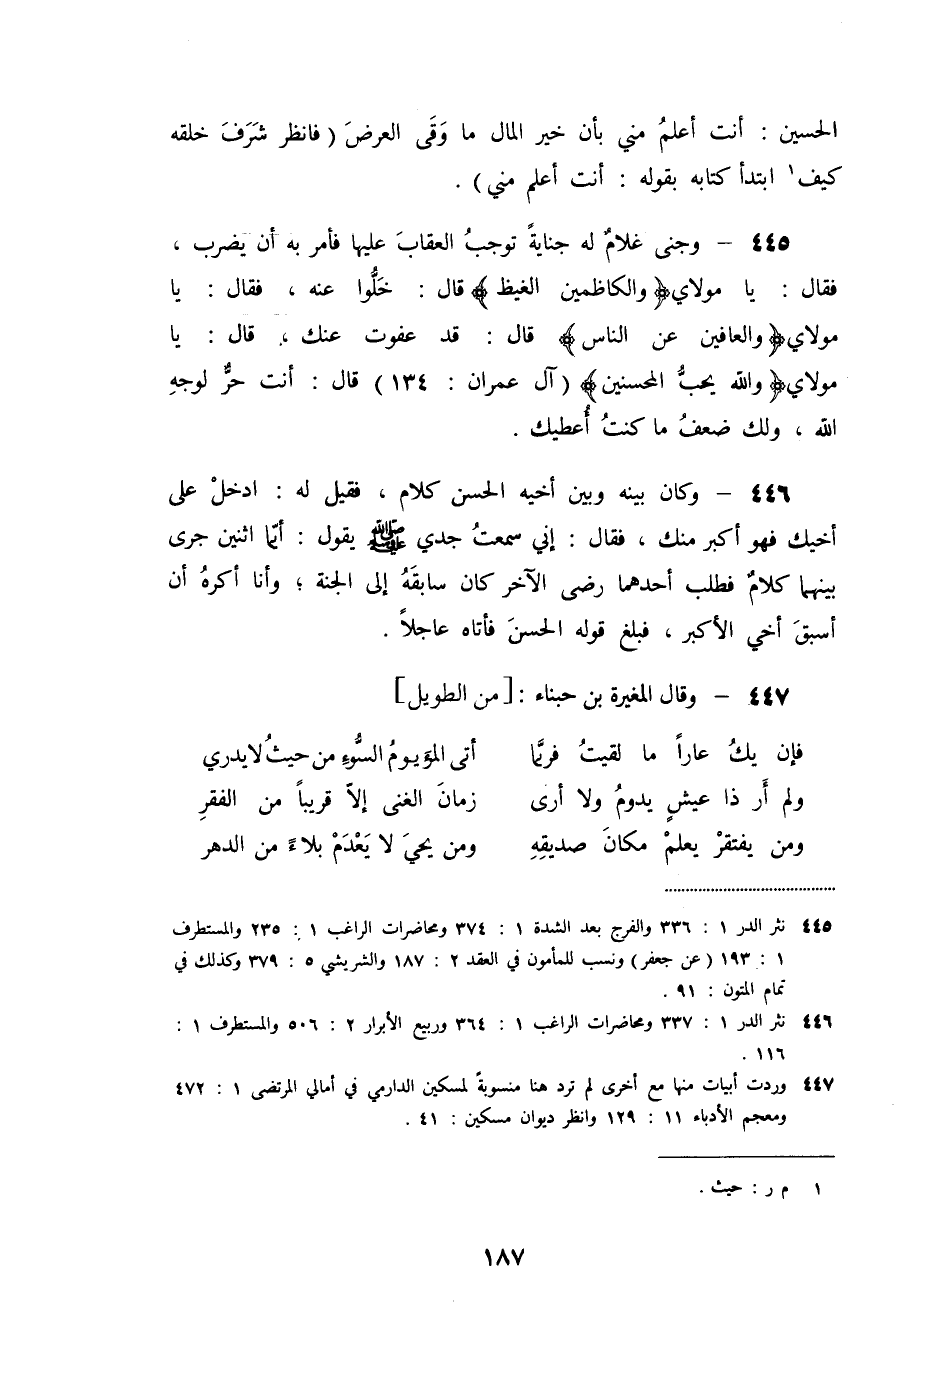 الحسين : أنت أعلمُ مني بأن خير المال ما وَقَى العرضَ ( فانظر شَرَفَ خلقه
كيف١ ابتدأ كتابه بقوله : أنت أعلم مني ) .
٤٤٥ – وجنى غلامٌ له جنايةً توجبُ العقابَ عليها فأمر به أن يضرب ،
فقال : يا مولاي ﴿ والكاظمين الغيظ ﴾ قال : خَلُّوا عنه ، فقال : يا
مولاي ﴿ والعافين عن الناس ﴾ قال : قد عفوت عنك ، قال : يا
مولاي ﴿ والله يحبُّ المحسنين ﴾ ( آل عمران : ١٣٤ ) قال : أنت حرٌّ لوجهِ
الله ، ولك ضعفُ ما كنتُ أُعطيك .
٤٤٦ – وكان بينه وبين أخيه الحسن كلام ، فقيل له : ادخلْ على
أخيك فهو أكبر منك ، فقال : إني سمعتُ جدي ﷺ يقول : أيّما اثنين جرى
بينهما كلامٌ فطلب أحدهما رضى الآخر كان سابقَهُ إلى الجنة ؛ وأنا أكرهُ أن
أسبقَ أخي الأكبر ، فبلغ قوله الحسنَ فأتاه عاجلاً .
٤٤٧ – وقال المغيرة بن حبناء : [ من الطويل ]
فإن يكُ عاراً ما لقيتُ فربَّما أتى المرءَ يومُ السُّوءِ من حيثُ لا يدري
ولم أَر ذا عيشٍ يدومُ ولا أرى زمانَ الغنى إلاّ قريباً من الفقرِ
ومن يفتقرْ يعلمْ مكانَ صديقِهِ ومن يحيَ لا يَعْدَمْ بلاءً من الدهر
٤٤٥ نثر الدر ١ : ٣٣٦ والفرج بعد الشدة ١ : ٣٧٤ ومحاضرات الراغب ١ : ٢٣٥ والمستطرف
١ : ١٩٣ ( عن جعفر ) ونسب للمأمون في العقد ٢ : ١٨٧ والشريشي ٥ : ٣٧٩ وكذلك في
تمام المتون : ٩١ .
٤٤٦ نثر الدر ١ : ٣٣٧ ومحاضرات الراغب ١ : ٣٦٤ وربيع الأبرار ٢ : ٥٠٦ والمستطرف ١ :
١١٦ .
٤٤٧ وردت أبيات منها مع أخرى لم ترد هنا منسوبةً لمسكين الدارمي في أمالي المرتضى ١ : ٤٧٢
ومعجم الأدباء ١١ : ١٢٩ وانظر ديوان مسكين : ٤١ .
١ م ر : حيث .
١٨٧